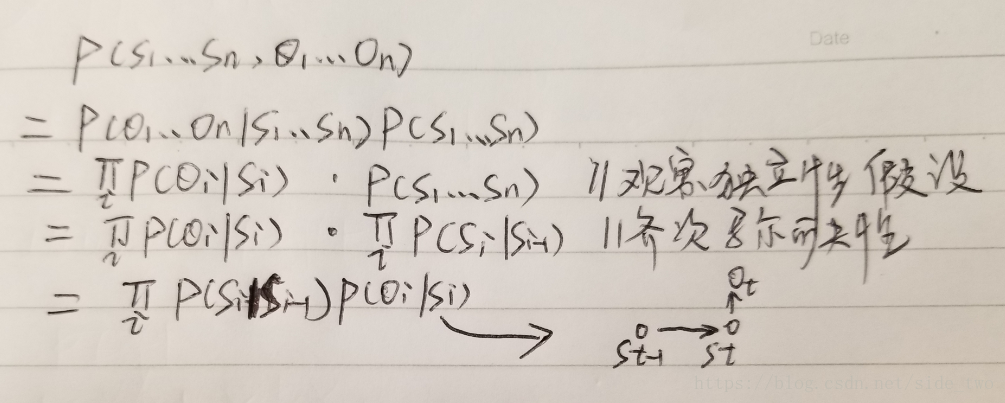 Date
P(S₁...Sn, O₁...On)
= P(O₁...On|S₁...Sn)P(S₁...Sn)
= ∏ᵢ P(Oᵢ|Sᵢ) · P(S₁...Sn) // 观察独立性假设
= ∏ᵢ P(Oᵢ|Sᵢ) · ∏ᵢ P(Sᵢ|Sᵢ₋₁) // 齐次马尔可夫性
= ∏ᵢ P(Sᵢ|Sᵢ₋₁)P(Oᵢ|Sᵢ)
Oₜ
Sₜ₋₁ Sₜ